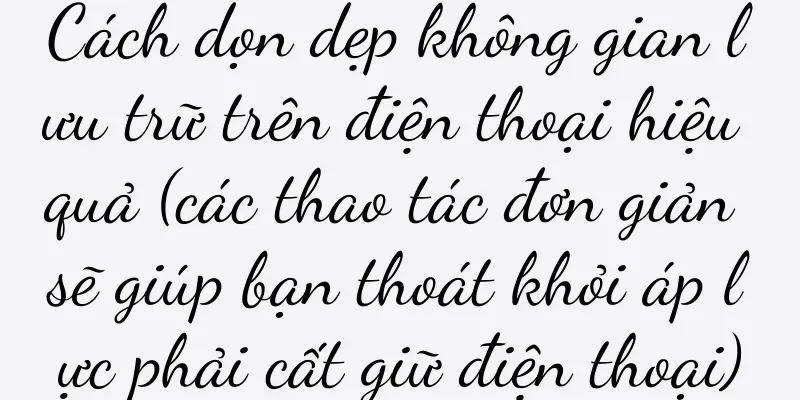 Cách dọn dẹp không gian l
ưu trữ trên điện thoại hiệu
quả (các thao tác đơn giản
sẽ giúp bạn thoát khỏi áp l
ực phải cất giữ điện thoại)